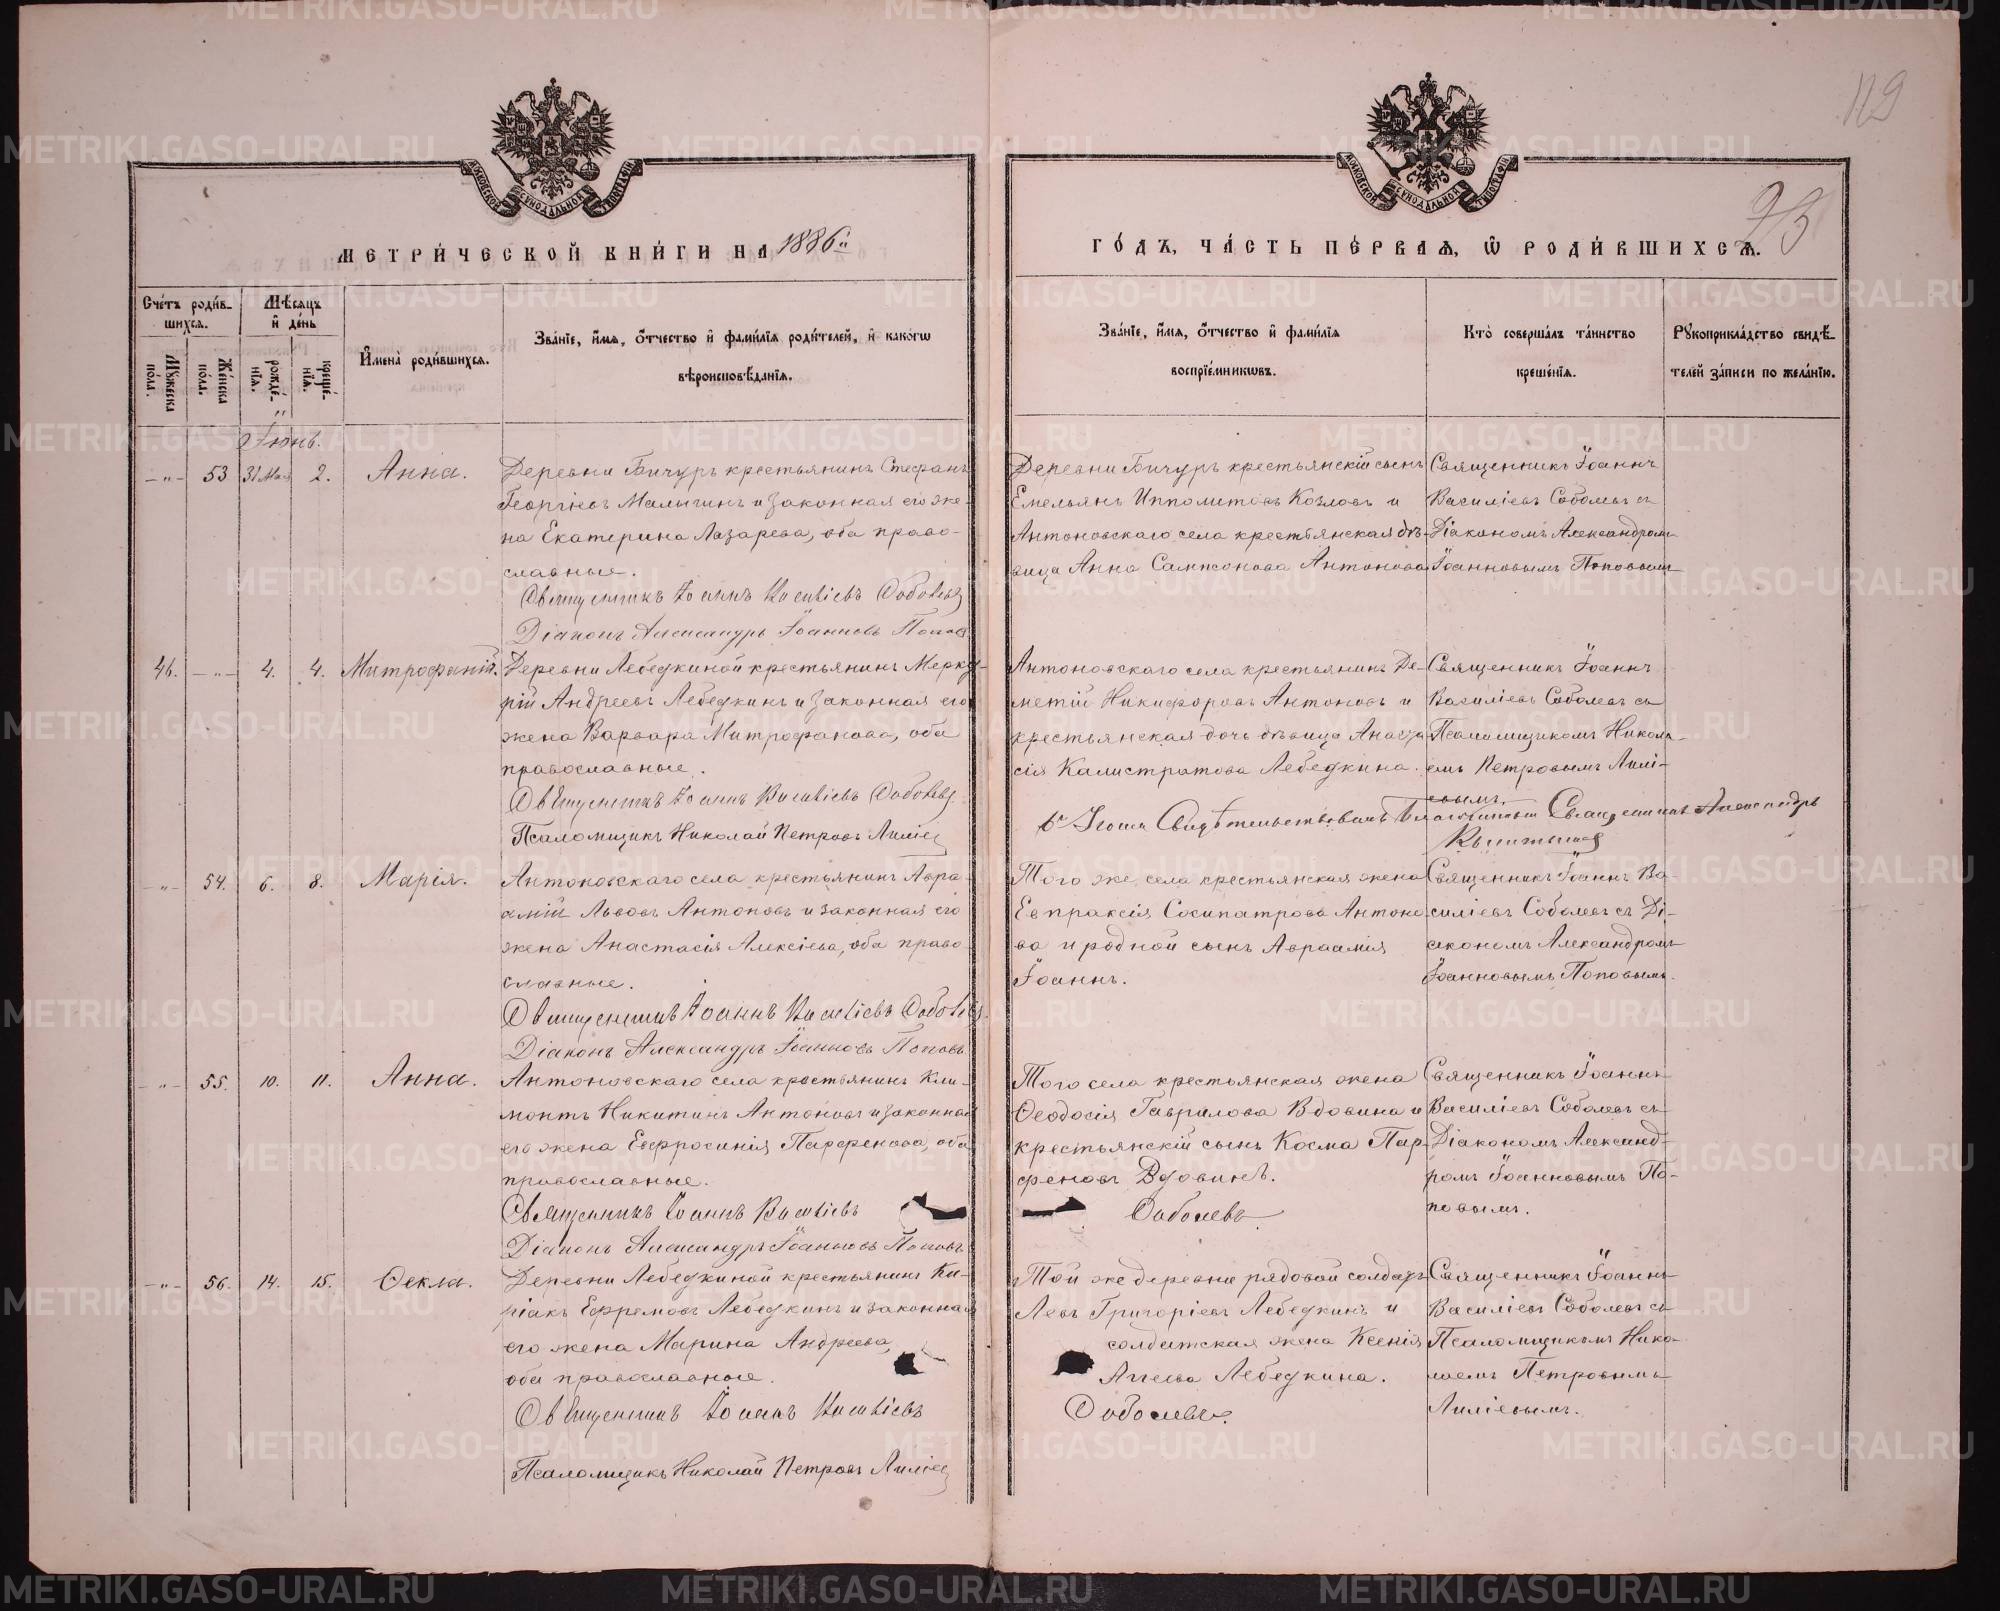 112
93
МОСКОВСКОЙ СѴНОДАЛЬНОЙ ТИПОГРАФІИ
МОСКОВСКОЙ СѴНОДАЛЬНОЙ ТИПОГРАФІИ
МЕТРИ́ЧЕСКОЙ КНИ́ГИ НА 1886й
ГО́ДЪ, ЧА́СТЬ ПЕ́РВАѦ, Ѡ РОДИ́ВШИХСѦ.
Сче́тъ роди́вшихсѧ.
Мꙋ́жеска по́ла.
Же́нска по́ла.
Мѣ́сѧцъ и҆ де́нь
рожде́нїѧ.
креще́нїѧ.
И҆мена̀ роди́вшихсѧ.
Зва́нїе, и҆́мѧ, ѻ҆́тчество и҆ фами́лїѧ роди́телей, и҆ како́гѡ
вѣроисповѣ́данїѧ.
Зва́нїе, и҆́мѧ, ѻ҆́тчество и҆ фами́лїѧ
воспрїе́мникѡвъ.
Кто̀ соверша́лъ та́инство
креще́нїѧ.
Рꙋкоприкла́дство свидѣ́-
телей за́писи по жела́нїю.
Іюнь.
-"- 53 31 Мая 2. Анна.
Деревни Бичуръ крестьянинъ Стефанъ
Георгіевъ Малыгинъ и законная его же-
на Екатерина Лазарева, оба право-
славные.
Священникъ Іоаннъ Василіевъ Соболевъ
Діаконъ Александръ Іоанновъ Поповъ
Деревни Бичуръ крестьянскій сынъ
Емельянъ Ипполитовъ Козловъ и
Антоновскаго села крестьянская дѣ-
вица Анна Сампсонова Антонова
Священникъ Іоаннъ
Василіевъ Соболевъ съ
Діакономъ Александромъ
Іоанновымъ Поповымъ
46. -"- 4. 4. Митрофаній.
Деревни Лебедкиной крестьянинъ Мерку-
рій Андреевъ Лебедкинъ и законная его
жена Варвара Митрофанова, оба
православные.
Священникъ Іоаннъ Василіевъ Соболевъ
Псаломщикъ Николай Петровъ Лиліев
Антоновскаго села крестьянинъ Де-
метій Никифоровъ Антоновъ и
крестьянская дочь дѣвица Анаста
сія Калистратова Лебедкина.
Священникъ Іоаннъ
Василіевъ Соболевъ съ
Псаломщикомъ Никола-
емъ Петровымъ Лилі-
евымъ.
Свидѣтельствовалъ Благочинный Священникъ Александръ
-"- 54. 6. 8. Марія.
Антоновскаго села крестьянинъ Авра-
амій Львовъ Антоновъ и законная его
жена Анастасія Алексіева, оба право-
славные.
Священникъ Іоаннъ Василіевъ Соболевъ.
Діаконъ Александръ Іоанновъ Поповъ.
Того же села крестьянская жена
Евпраксія Сосипатрова Антоно-
ва и родной сынъ Авраамія
Іоаннъ.
Священникъ Іоаннъ Ва-
силіевъ Соболевъ съ Ді-
акономъ Александромъ
Іоанновымъ Поповымъ.
-"- 55. 10. 11. Анна.
Антоновскаго села крестьянинъ Кли-
ментъ Никитинъ Антоновъ и законная
его жена Евфросинія Парфенова, оба
православные.
Священникъ Іоаннъ Василіевъ
Соболевъ.
Діаконъ Александръ Іоанновъ Поповъ.
Того села крестьянская жена
Ѳеодосія Гаврилова Вдовина и
крестьянскій сынъ Косма Пар-
феновъ Вдовинъ.
Священникъ Іоаннъ
Василіевъ Соболевъ съ
Діакономъ Александ-
ромъ Іоанновымъ По-
повымъ.
-"- 56. 14. 15. Ѳекла.
Деревни Лебедкиной крестьянинъ Ки-
ріакъ Ефремовъ Лебедкинъ и законная
его жена Марина Андреева,
оба православные.
Священникъ Іоаннъ Василіевъ
Соболевъ.
Псаломщикъ Николай Петровъ Лиліев
Той же деревни рядовой солдатъ
Левъ Григоріевъ Лебедкинъ и
солдатская жена Ксенія
Аггеева Лебедкина.
Священникъ Іоаннъ
Василіевъ Соболевъ съ
Псаломщикомъ Нико-
лаемъ Петровымъ
Лиліевымъ.
METRIKI.GASO-URAL.RU